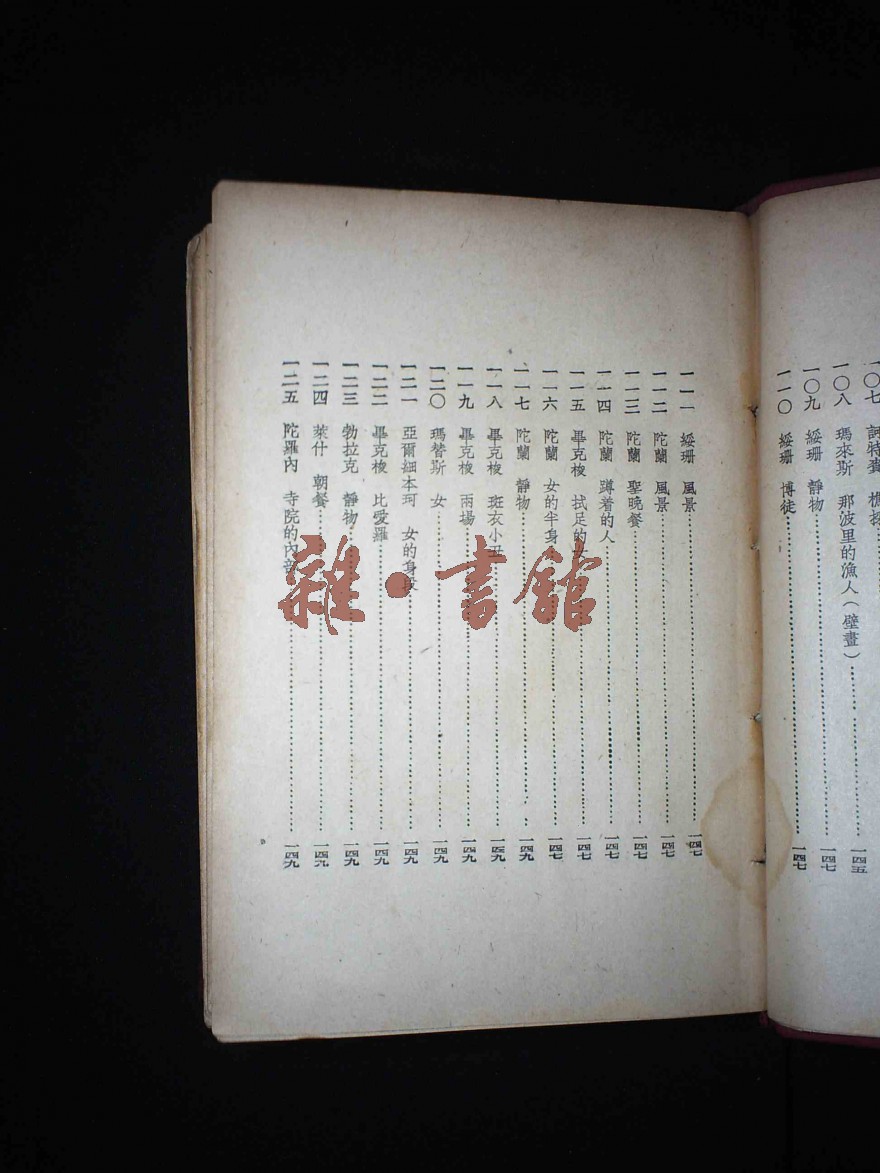 一〇八　瑪來斯　那波里的漁人（壁畫）……一四五
一〇九　綏珊　靜物……一四七
一一〇　綏珊　博徒……一四七
一一一　綏珊　風景……一四七
一一二　陀蘭　風景……一四七
一一三　陀蘭　聖晚餐……一四七
一一四　陀蘭　蹲着的人……一四七
一一五　畢克梭　拭足的女……一四七
一一六　陀蘭　女的半身……一四七
一一七　陀蘭　靜物……一四九
一一八　畢克梭　斑衣小丑……一四九
一一九　畢克梭　兩場……一四九
一二〇　瑪替斯　女……一四九
一二一　亞爾細本珂　女的身長……一四九
一二二　畢克梭　比愛羅……一四九
一二三　勃拉克　靜物……一四九
一二四　萊什　朝餐……一四九
一二五　陀羅內　寺院的內部……一四九
雜·書館